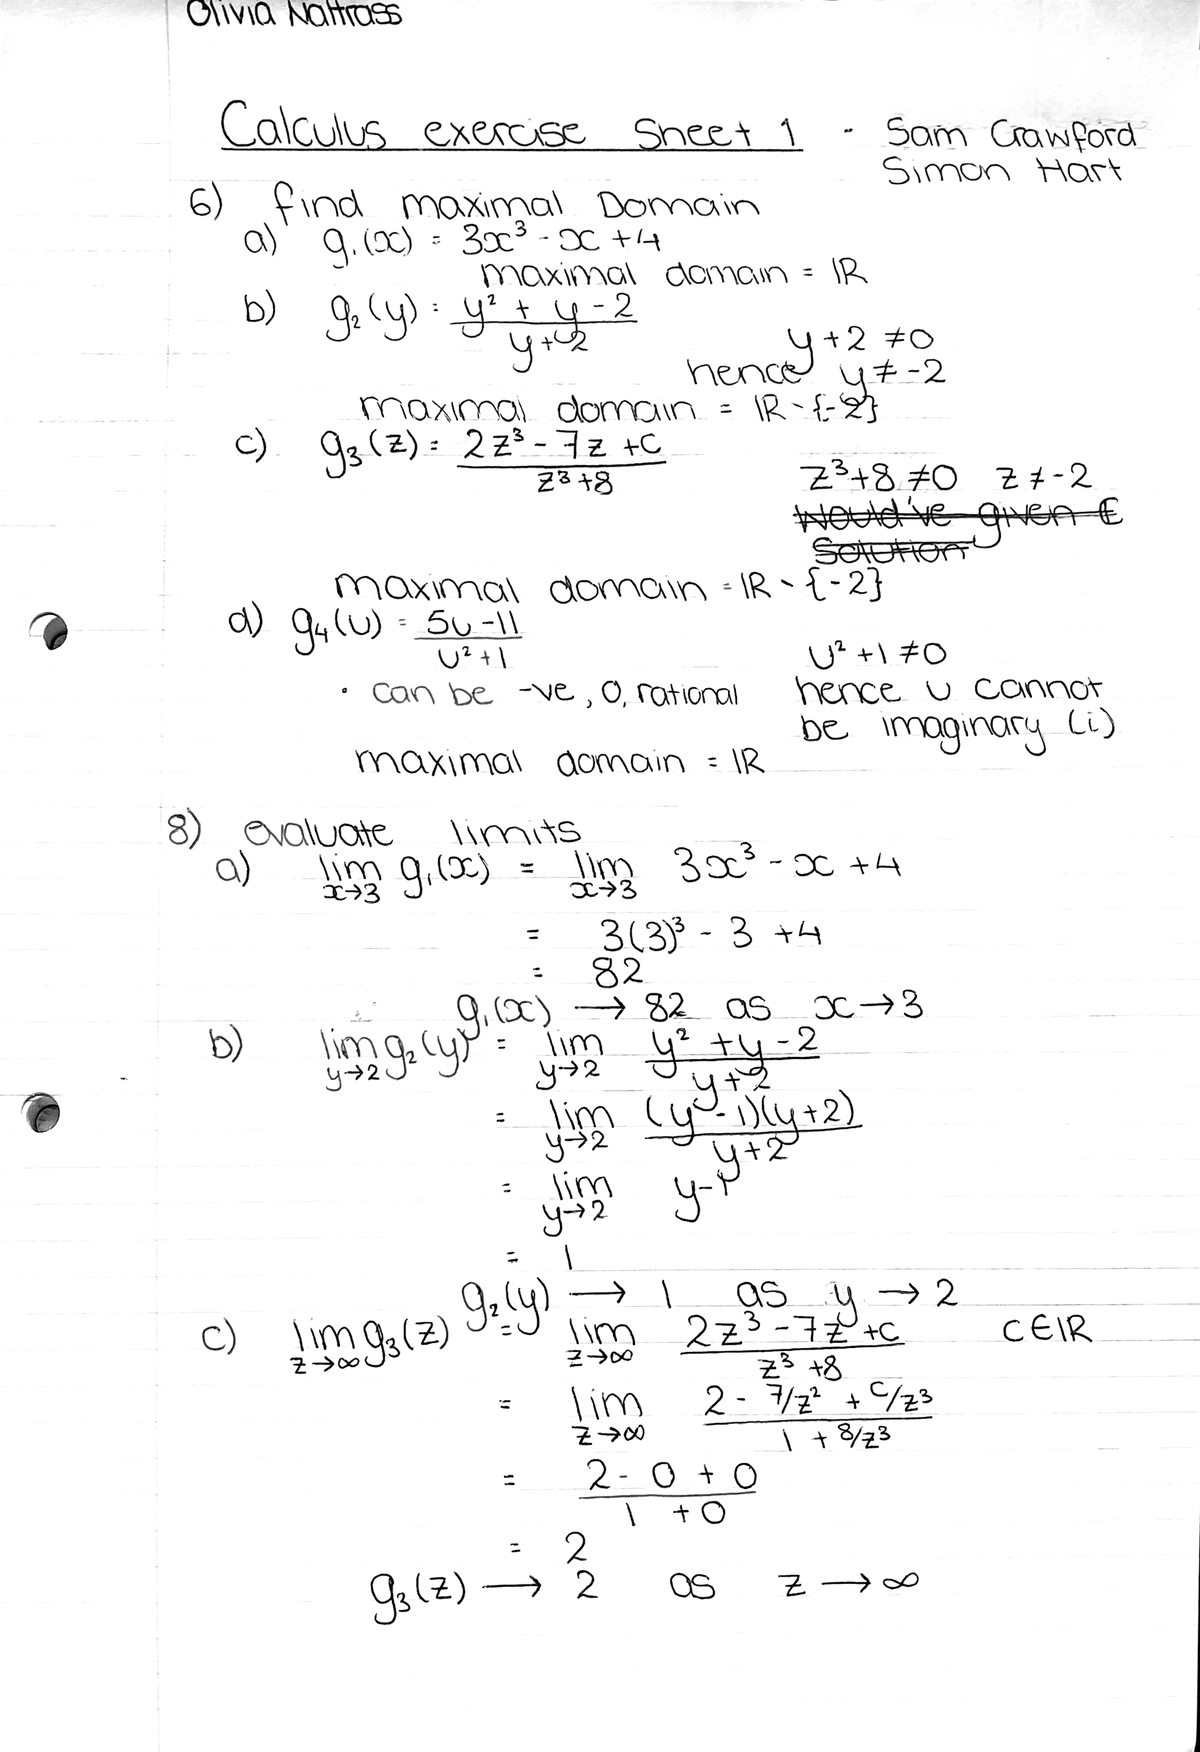 Olivia Nattrass
Calculus exercise Sheet 1 - Sam Crawford
Simon Hart
6) find maximal Domain
a) g₁(x) = 3x³ - x + 4
maximal domain = ℝ
b) g₂(y) = (y² + y - 2)/(y + 2)
y + 2 ≠ 0
hence y ≠ -2
maximal domain = ℝ \ {-2}
c) g₃(z) = (2z³ - 7z + c)/(z³ + 8)
z³ + 8 ≠ 0 z ≠ -2
Would've given
Solution
maximal domain = ℝ \ {-2}
d) g₄(u) = (5u - 11)/(u² + 1)
u² + 1 ≠ 0
• can be -ve, 0, rational hence u cannot
be imaginary (i)
maximal domain = ℝ
8) evaluate limits
a) lim x→3 g₁(x) = lim x→3 3x³ - x + 4
= 3(3)³ - 3 + 4
= 82
g₁(x) → 82 as x → 3
b) lim y→2 g₂(y) = lim y→2 (y² + y - 2)/(y + 2)
= lim y→2 (y - 1)(y + 2)/(y + 2)
= lim y→2 y - 1
= 1
g₂(y) → 1 as y → 2
c) lim z→∞ g₃(z) = lim z→∞ (2z³ - 7z + c)/(z³ + 8) c ∈ ℝ
= lim z→∞ (2 - 7/z² + c/z³)/(1 + 8/z³)
= (2 - 0 + 0)/(1 + 0)
= 2
g₃(z) → 2 as z → ∞